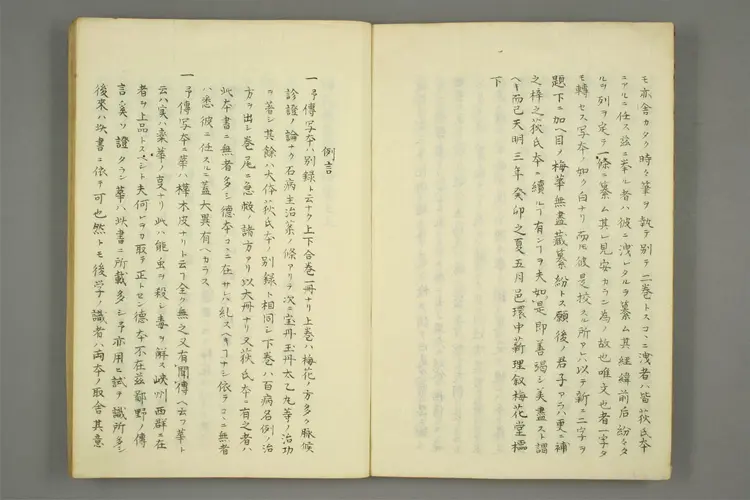 モ亦舎カタク時々筆ヲ執テ別ヲ二巻トスコヽニ洩者ハ皆荻氏本
ニアルニ任ス玆ニ挙ル者ハ彼ニ洩レタルヲ纂ム其経緯前后紛シタ
ルヲ列ヲ定テ一條ニ纂ム其レ見安カラン為ノ故也唯文也者一字タ
モ轉セス写本ノ如ク白ナリ而ルニ彼是校スル所アレハ以テ新ニ二字ヲ
題下ニ加ヘ目ノ梅華無盡蔵纂紛トス願後ノ君子アラハ更ニ補
之梓之荻氏本ニ續ルヿ有ンヿヲ夫如是即善竭シ美盡スト謂
ヘキ而已天明三年癸卯之夏五月邑環中菥理叙梅花堂檑
下
例言
一予傳写本ハ別録ト云ナク上下合巻一冊ナリ上巻ハ梅花ノ方多ク脉候
診證ノ論ナク石病主治藥ノ條アリテ次ニ宝丹玉丹太乙丸等ノ治功
ヲ著シ其餘ハ大体荻氏本ノ別録ト相同シ下巻ハ百病名例ノ治
方ヲ出シ巻尾ニ急救ノ諸方アリ以大丹ナリ又荻氏本ニ有之者ハ
此本書ニ無者多シ徳本コヽニ在サレハ乱スヘキヿナシ依テコヽニ無者
ハ悉彼ニ任スルニ蓋大異有ヘカラス
一予傳写本ニ華ハ樺木皮ナリト云フ全ク無之又有聞傳ヘ云フ華ト
云ハ実ハ棄華ノ㕝ナリ此ハ能虫ヲ殺シ毒ヲ解ス峡州西群ニ在
者ヲ上品トスヘシト夫何レヲカ取ヲ正トセン徳本不在茲鄙野ノ傳
言奚ソ證タラン華ハ此書ニ所載多シ予亦用ヒ試ヲ識所多シ
後来ハ此書ニ依ヲ可也然トモ後学ノ識者ハ両本ノ取舎其意